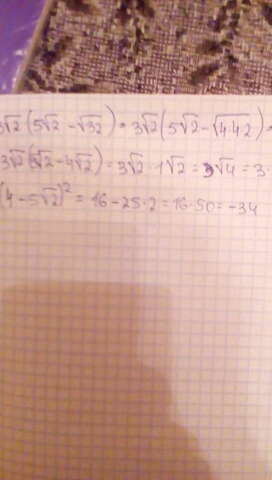 3√2(5√2-√32)=3√2(5√2-√4·42)=
3√2(5√2-4√2)=3√2·1√2=3√4=3·
(4-5√2)²=16-25·2=16-50=-34